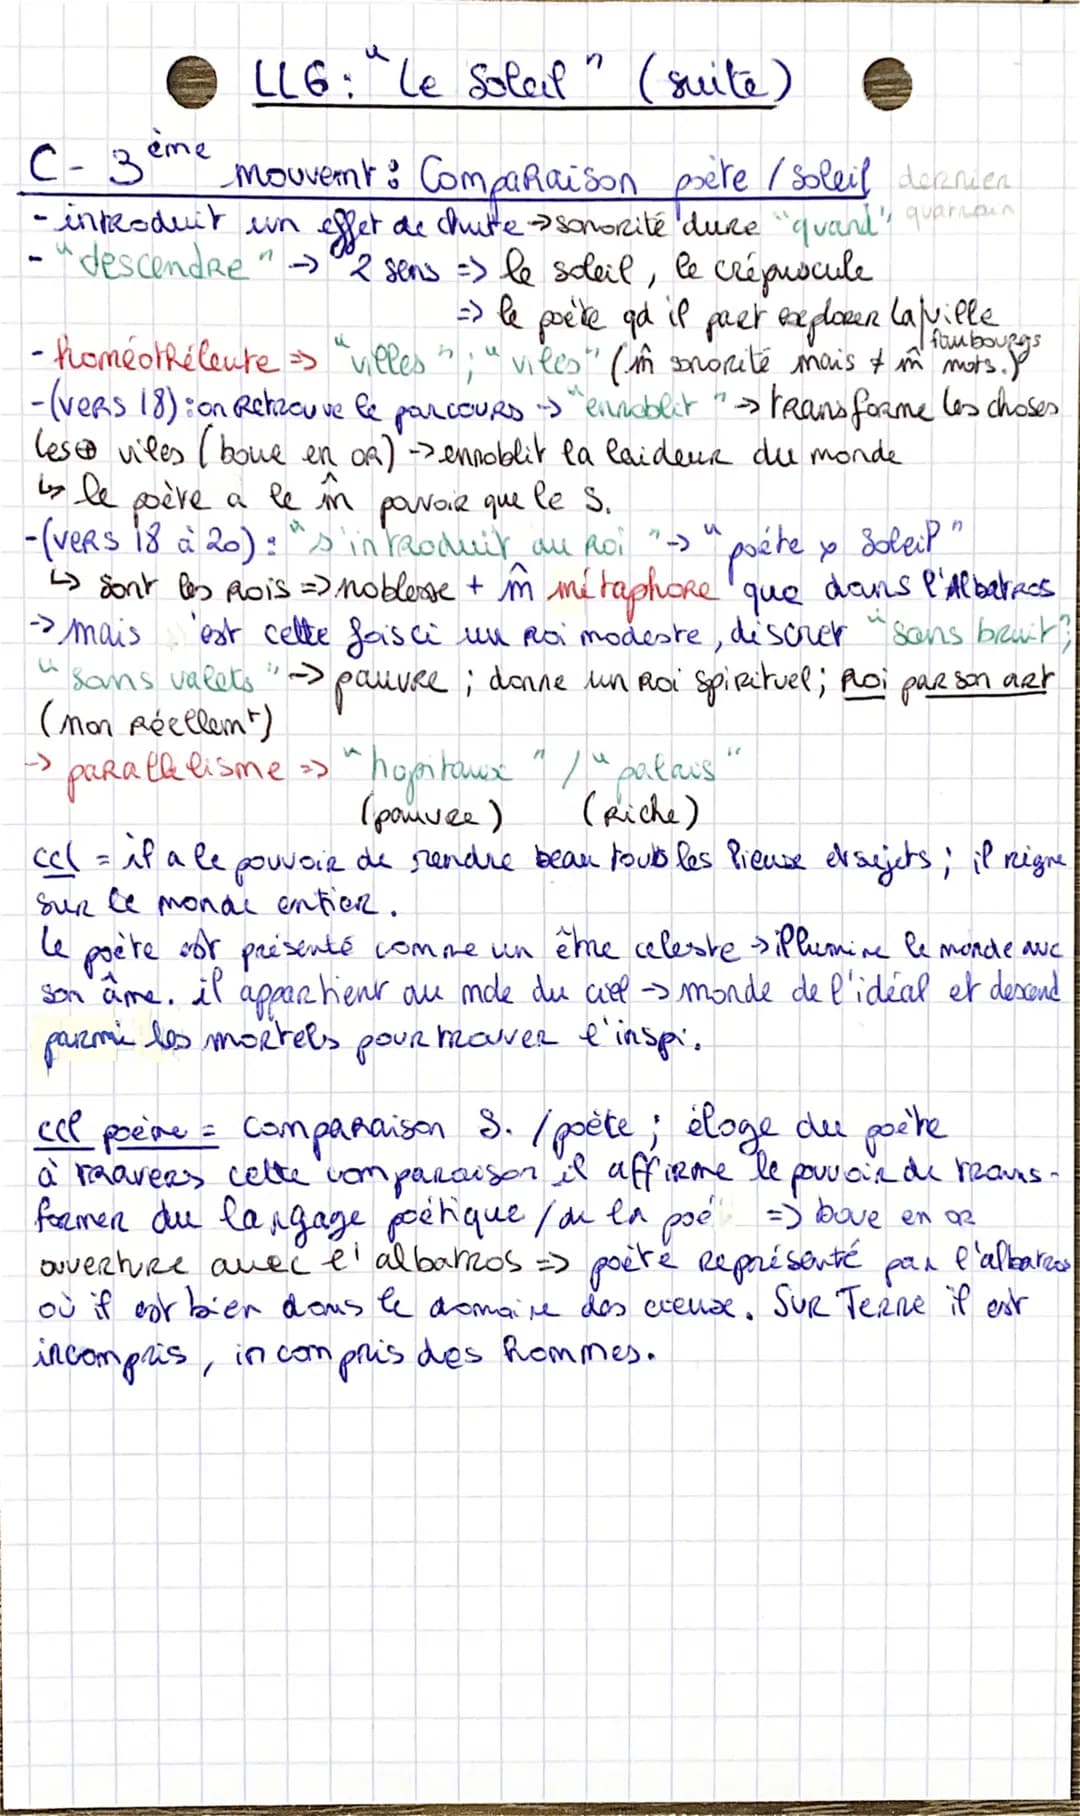 LL6 : "Le Soleil" (suite)
C - 3ème mouvemt : Comparaison poète / Soleil dernier
quatrain
- introduit un effet de chute → sonorité dure "quand"
- "descendre" → 2 sens => le soleil, le crépuscule
=> le poète qd il part explorer la ville
faubourgs
- homéothéleute => "villes" ; "viles" (m̂ sonorité mais ≠ m̂ mots.)
- (vers 18) : on retrouve le parcours → "ennoblit" → transforme les choses
les ⊕ viles (boue en or) → ennoblit la laideur du monde
↳ le poète a le m̂ pouvoir que le S.
- (vers 18 à 20) : "s'introduit au roi" → "poète x Soleil"
↳ sont les rois => noblesse + m̂ métaphore que dans l'Albatros
→ mais 'est cette fois ci un roi modeste, discret "sans bruit";
"sans valets" → pauvre ; donne un roi spirituel ; Roi par son art
(non réellemt)
→ parallélisme => "hopitaux" / "palais"
(pauvre) (riche)
ccl = il a le pouvoir de rendre beau touts les lieux et sujets ; il règne
sur le monde entier.
Le poète est présenté comme un être celeste → illumine le monde avc
son âme. il appartient au mde du ciel → monde de l'idéal et descend
parmi les mortels pour trouver l'inspi.
ccl poème = Comparaison S. / poète ; éloge du poète
à travers cette comparaison il affirme le pouvoir de trans-
former du langage poétique / de la poé => boue en or
ouverture avec l'albatros => poète représenté par l'albatros
où il est bien dans le domaine des cieux. Sur Terre il est
incompris, incompris des hommes.